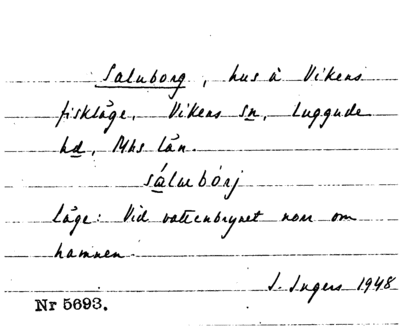 Saluborg, hus å Vikens
fiskläge, Vikens sn, Luggude
hd, Mhs län.
sálubórj
läge: Vid vattenbrynet norr om
hamnen.
I. Ingers 1948
Nr 5693.